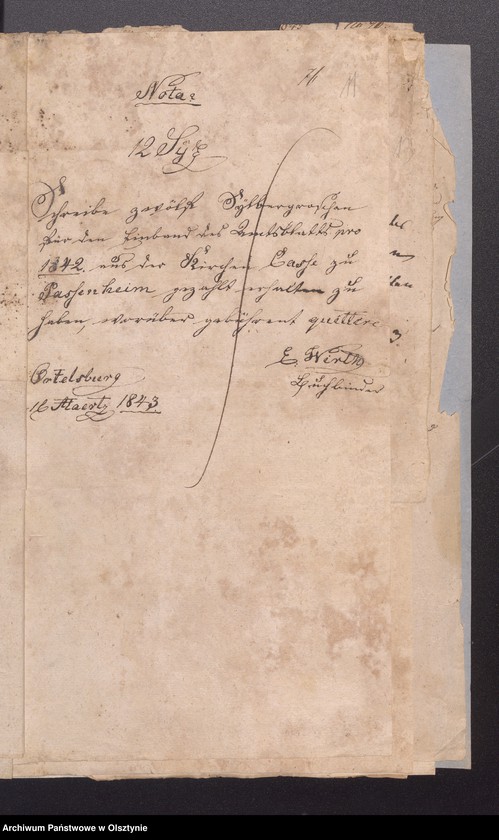 Nota
11
12 Sgr
Schreibe zwölf Sylbergroschen
für den Einband des Amtsblatts pro
1842 aus der Kirchen Casse zu
Passenheim gezahlt erhalten zu
haben, worüber gebührent quittere
E. Wirth
Buchbinder
Ortelsburg
Maertz 1843
Archiwum Państwowe w Olsztynie